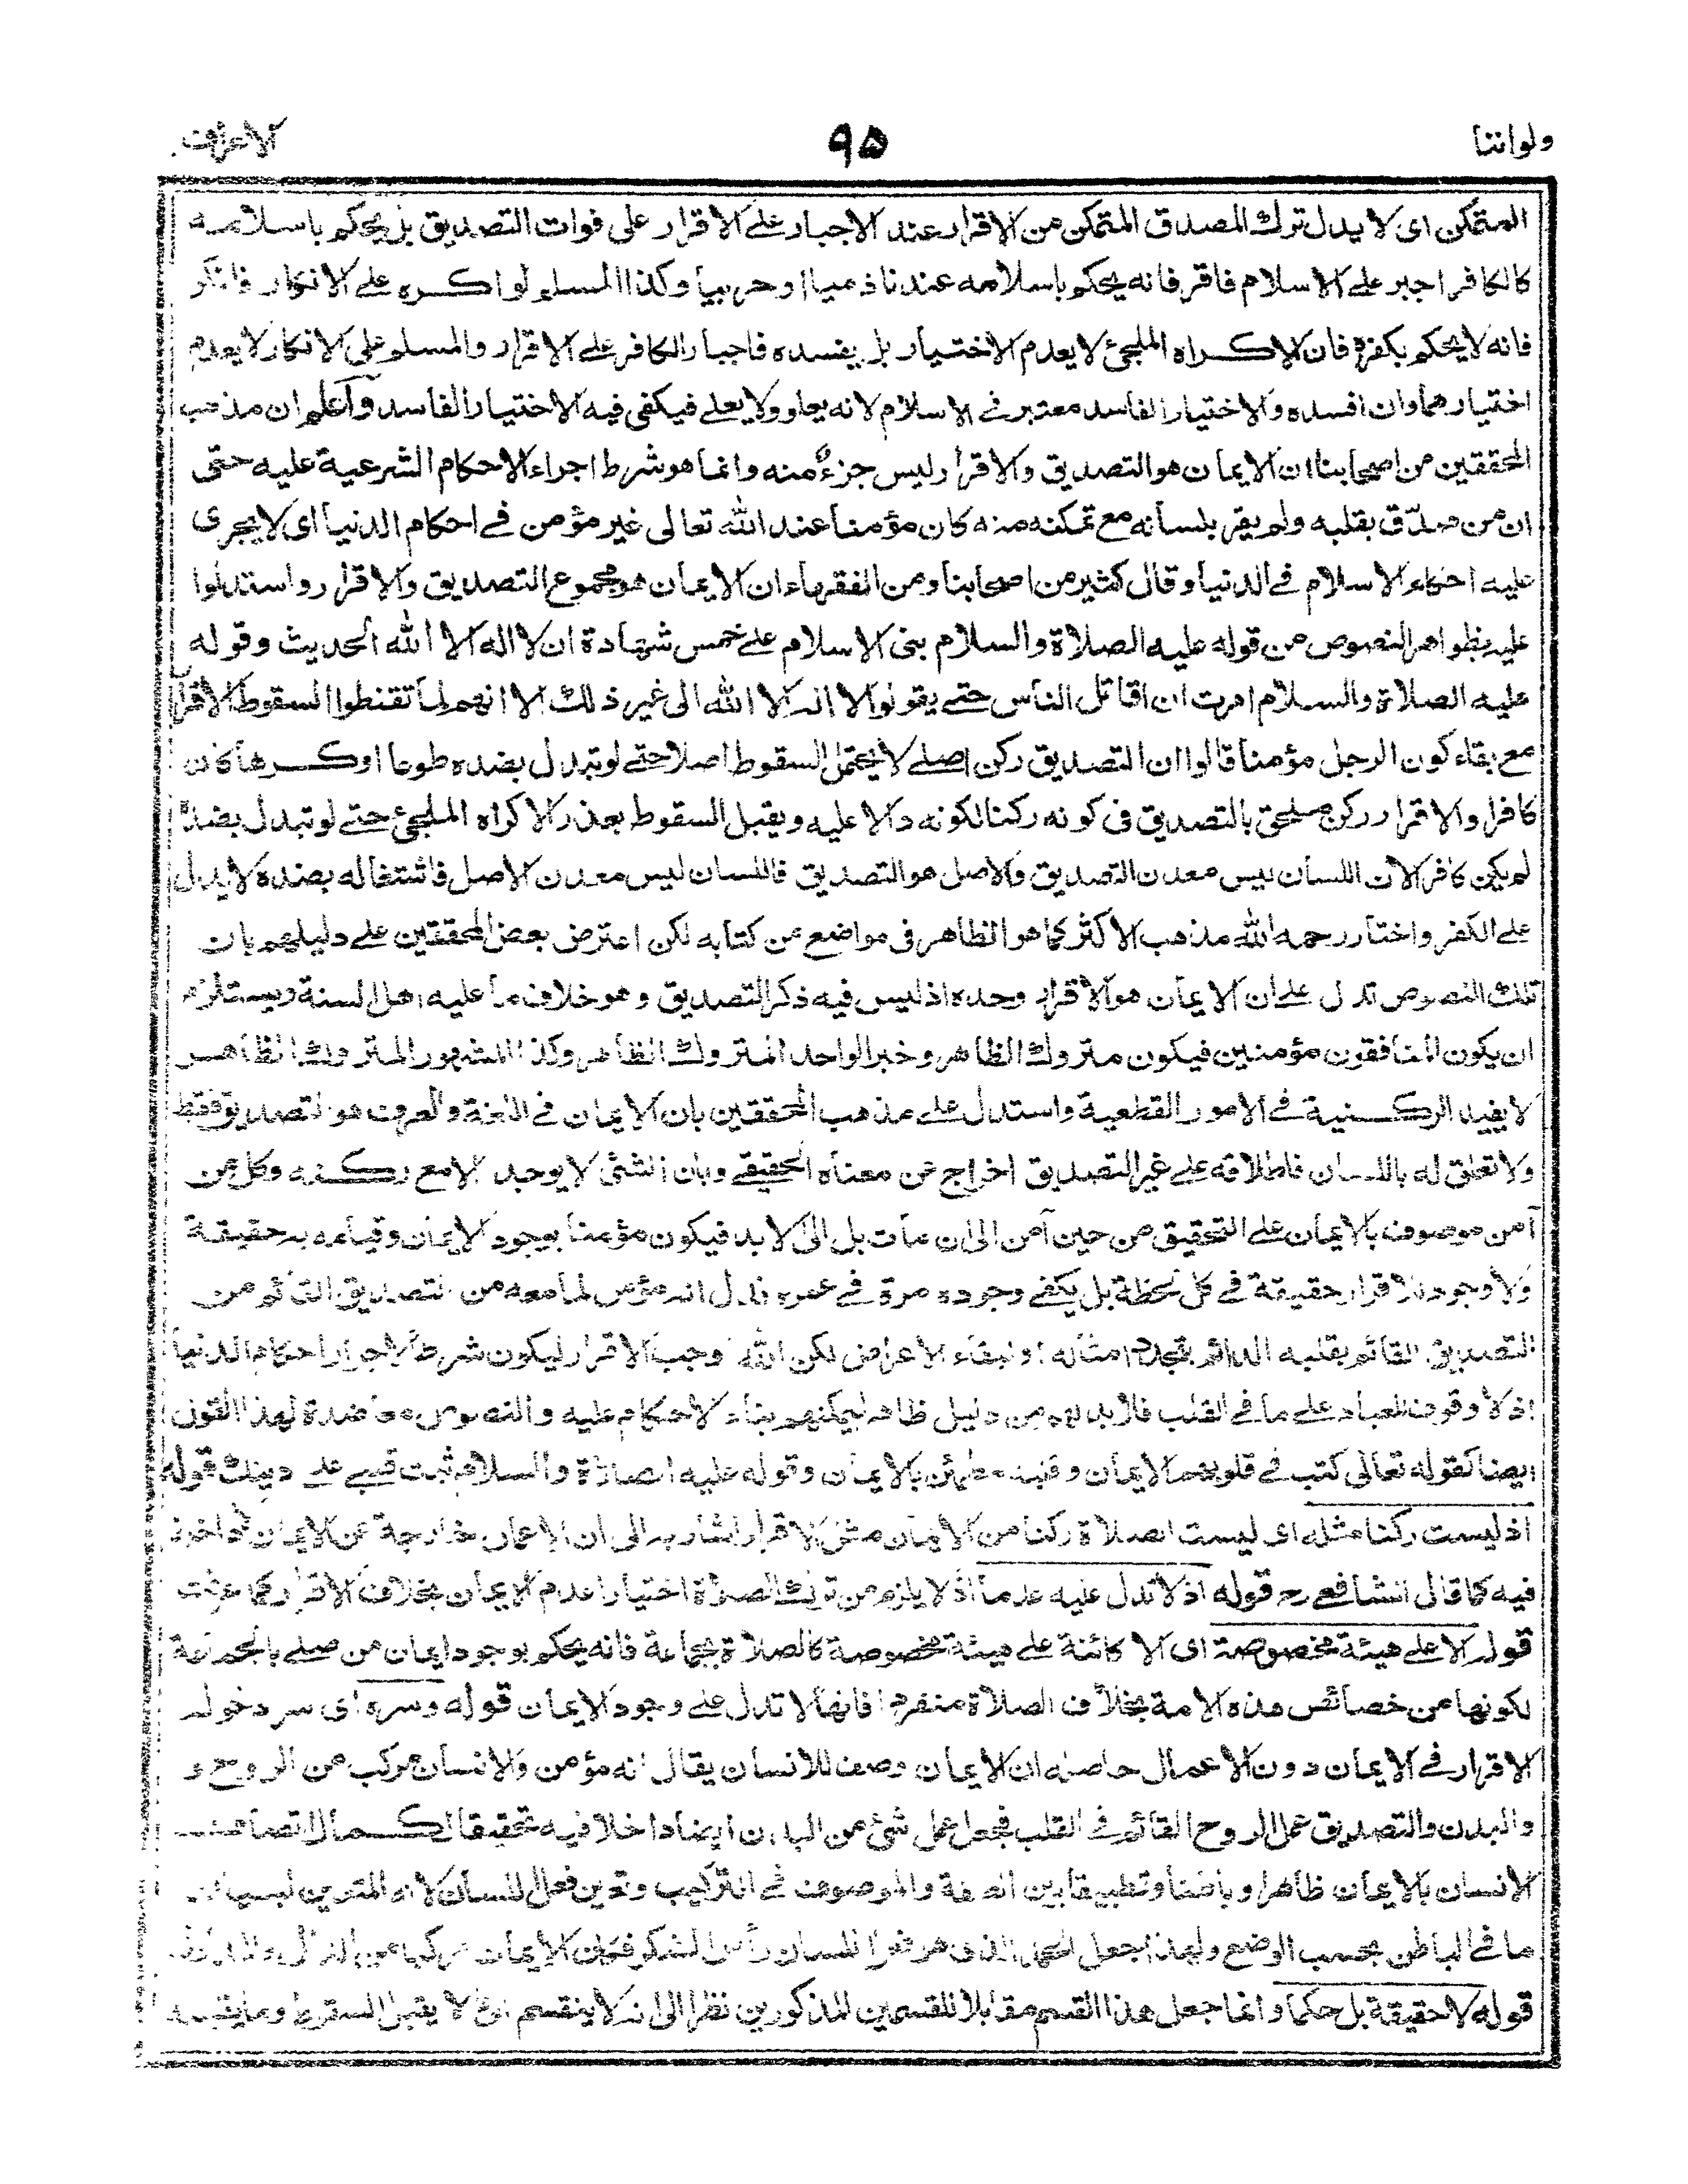 ولواننا ٩٥ الاعراف
المتمكن اى لا يدل ترك المصدق المتمكن من الاقرار عند الاجبار على الاقرار على فوات التصديق بل يحكم باسلامه
كالكافر اجبر على الاسلام فاقر فانه يحكم باسلامه عندنا ذميا او حربيا وكذا المسلم لو اكره على الانكار فانكر
فانه لا يحكم بكفره فان الاكراه الملجئ لا يعدم الاختيار بل يفسده فاجبار الكافر على الاقرار والمسلم على الانكار لا يعدم
اختيارهما وان افسده والاختيار الفاسد معتبر فى الاسلام لانه يعلو ولا يعلى فيكفى فيه الاختيار الفاسد واعلم ان مذهب
المحققين من اصحابنا ان الايمان هو التصديق والاقرار ليس جزءٌ منه وانما هو شرط اجراء الاحكام الشرعية عليه حتى
ان من صدّق بقلبه ولم يقر بلسانه مع تمكنه منه كان مؤمنا عند الله تعالى غير مؤمن فى احكام الدنيا اى لا يجرى
عليه احكام الاسلام فى الدنيا وقال كثير من اصحابنا ومن الفقهاء ان الايمان هو مجموع التصديق والاقرار واستدلوا
عليه بظواهر النصوص من قوله عليه الصلاة والسلام بنى الاسلام على خمس شهادة ان لا اله الا الله الحديث وقوله
عليه الصلاة والسلام امرت ان اقاتل الناس حتى يقولوا لا اله الا الله الى غير ذلك الا انهم لما تفطنوا السقوط الاقرار
مع بقاء كون الرجل مؤمنا قالوا ان التصديق ركن اصلى لا يحتمل السقوط اصلا حتى لو تبدل بضده طوعا او كرها كان
كافرا والاقرار ركن ملحق بالتصديق فى كونه ركنا لكونه دالا عليه ويقبل السقوط بعذر الاكراه الملجئ حتى لو تبدل بضده
لم يكن كافرا لان اللسان ليس معدن التصديق والاصل هو التصديق فاللسان ليس معدن الاصل فاشتغاله بضده لا يدل
على الكفر واختار رحمه الله مذهب الاكثر كما هو الظاهر فى مواضع من كتابه لكن اعترض بعض المحققين على دليلهم بان
تلك النصوص تدل على ان الايمان هو الاقرار وحده اذ ليس فيه ذكر التصديق وهو خلاف ما عليه اهل السنة ويستلزم
ان يكون المنافقون مؤمنين فيكون متروك الظاهر وخبر الواحد المتروك الظاهر وكذا المشهور المتروك الظاهر
لا يفيد الركنية فى الامور القطعية واستدل على مذهب المحققين بان الايمان فى اللغة والعرف هو التصديق فقط
ولا تعلق له باللسان فاطلاقه على غير التصديق اخراج عن معناه الحقيقى وبان الشئ لا يوجد الا مع ركنه وكل من
آمن موصوف بالايمان على التحقيق من حين آمن الى ان مات بل الى الابد فيكون مؤمنا بوجود الايمان وقيامه به حقيقة
ولا وجود للاقرار حقيقة فى كل لحظة بل يكفى وجوده مرة فى عمره فدل انه مؤمن لما معه من التصديق القائم من
التصديق القائم بقلبه الدائم بتجدد امثاله او لبقاء الاعراض لكن الله اوجب الاقرار ليكون شرطا لاجراء احكام الدنيا
اذ لا وقوف للعباد على ما فى القلب فلا بد لهم من دليل ظاهر ليمكنهم بناء الاحكام عليه والنصوص معاضدة لهذا القول
ايضا كقوله تعالى كتب فى قلوبهم الايمان وقلبه مطمئن بالايمان وقوله عليه الصلاة والسلام ثبت قلبى على دينك قوله
اذ ليست ركنا مثله اى ليست الصلاة ركنا من الايمان مثل الاقرار اشار به الى ان الاعمال خارجة عن الايمان
فيه كما قال الشافعى رح قوله اذ لا تدل عليه عدما اذ لا يلزم من ترك الصلاة اختيارا عدم الايمان بخلاف الاقرار كما عرفت
قوله الا على هيئة مخصوصة اى الا كائنة على هيئة مخصوصة كالصلاة بجماعة فانه يحكم بوجود ايمان من صلى بالجماعة
لكونها من خصائص هذه الامة بخلاف الصلاة منفردا فانها لا تدل على وجود الايمان قوله وسره اى سر دخول
الاقرار فى الايمان دون الاعمال حاصله ان الايمان وصف للانسان يقال انه مؤمن والانسان مركب من الروح و
والبدن والتصديق عمل الروح القائم فى القلب فجعل عمل شئ من البدن ايضا داخلا فيه تحقيقا لكمال اتصاف
الانسان بالايمان ظاهرا وباطنا وتطبيقا بين الصفة والموصوف فى التركيب وتعين فعل اللسان لانه المتعين لبيان
ما فى الباطن بحسب الوضع ولهذا جعل الحمد الذى هو فعل اللسان رأس الشكر فكان الايمان مركبا من
قوله لا حقيقة بل حكما وانما جعل هذا القسم مقابلا للقسمين المذكورين نظرا الى انه لا ينقسم الى ما لا يقبل السقوط وما يقبله